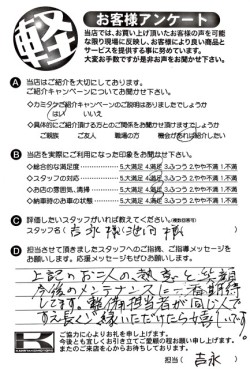 軽
お客様アンケート
当店では、お買い上げ頂いたお客様の声を可能
な限り現場に反映し、お客様により良い商品と
サービスを提供する事に努めています。
大変お手数ですが是非お声をお聞かせ下さい。
A 当店はご紹介を大切にしております。
ご紹介キャンペーンについてお聞かせ下さい。
◇カミタケご紹介キャンペーンのご説明はありましたでしょうか
はい いいえ
◇具体的にご紹介頂ける方とのご関係をお聞かせ頂けますでしょうか
ご親族 ご友人 職場の方 機会があれば紹介したい
B 当店を実際にご利用になった印象をお聞かせ下さい。
◇総合的な満足度 5.大満足 4.満足 3.ふつう 2.やや不満 1.不満
◇スタッフの対応 5.大満足 4.満足 3.ふつう 2.やや不満 1.不満
◇お店の雰囲気、清掃 5.大満足 4.満足 3.ふつう 2.やや不満 1.不満
◇納車時のお車の状態 5.大満足 4.満足 3.ふつう 2.やや不満 1.不満
C 評価したいスタッフがいれば教えてください。(複数回答可)
スタッフ名( 吉永様 池田様 )
D 担当させて頂きましたスタッフへのご指摘、ご指導メッセージを
お願いします。応援メッセージもぜひお願いします。
上記のお二人の熱意と笑顔
今後のメンテナンスに一番期待
してます。整備担当者が同じ人で
すえ長くご縁いただけたら嬉しいです。
K
ご協力に心よりお礼を申し上げます。
今後とも宜しくお引き立てご愛顧の程お願い申し上げます。
またのご来店を心からお待ちしております。
担当( 吉永 )